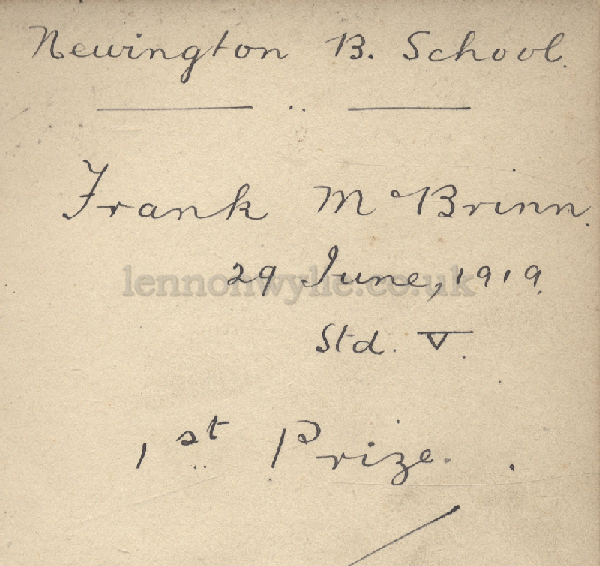 Newington B. School.
Frank McBrinn.
lennonwylie.co.uk
29 June, 1919.
Std. V.
1st Prize.